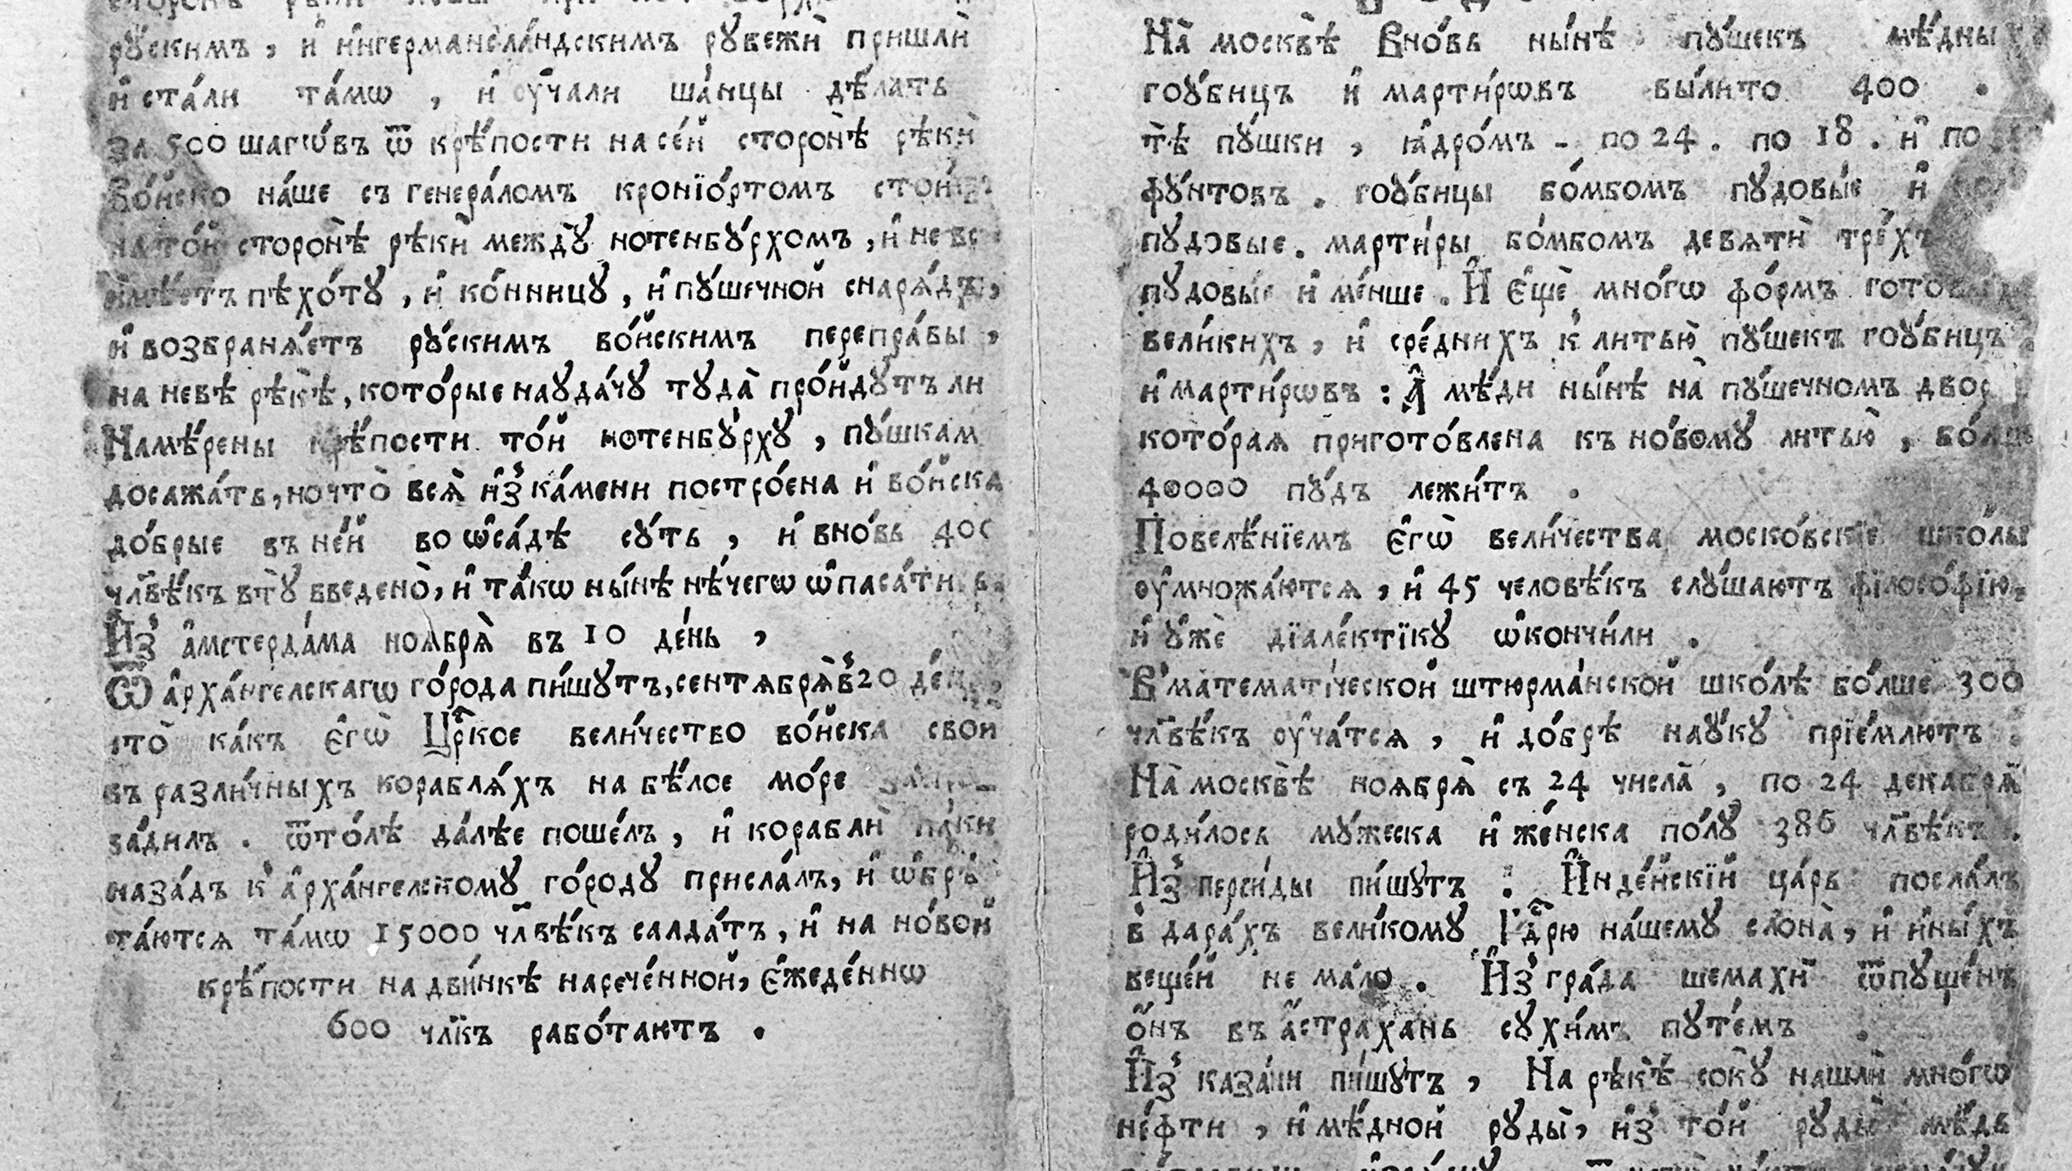 рꙋ́скимъ, и҆ и҆нгермансла́ндскимъ рꙋбежѝ пришлѝ
и҆ ста́ли та́мѡ, и҆ ᲂу҆ча́ли ша́нцы дѣ́лать
за 500 шагѡ́въ ѿ крѣ́пости на се́й сторонѣ̀ рѣкѝ
во́йско на́ше съ генера́ломъ кронїо́ртомъ
на то́й сторонѣ̀ рѣкѝ междꙋ̀ нотенбꙋ́рхомъ, и҆ не
и҆мѣ́етъ пѣхо́тꙋ, и҆ ко́нницꙋ, и҆ пꙋ́шечной снарѧ́дъ,
и҆ возбранѧ́етъ рꙋ́скимъ во́искимъ перепра́вы,
на невѣ̀ рѣкѣ̀, кото́рые наꙋда́чꙋ тꙋда̀ про́йдꙋтъ ли
Намѣ́рены крѣ́пости то́й нотенбꙋ́рхꙋ, пꙋ́шкам
досажа́ть, но что̀ всѧ̀ и҆з̾ ка́мени постро́ена и҆ во́йска
до́брые въ не́й во ѡ҆са́дѣ сꙋ́ть, и҆ вно́вь 400
чл҃вѣ́къ в тꙋ введено̀, и҆ та́кѡ ны́нѣ нѣ́чегѡ ѡ҆паса́ти
И҆з̾ а҆мстерда́ма ноѧбрѧ̀ въ 10 де́нь,
Ѿ а҆рха́нгелскагѡ го́рода пи́шꙋтъ, сентѧбрѧ̀ в̾ 20 де́нь,
что̀ ка́къ є҆гѡ̀ Цр҇кое вели́чество во́йска свои
въ разли́чныхъ кораблѧ́хъ на бѣ́лое мо́ре
за́дилъ. ѿто́лѣ да́лѣе поше́лъ, и҆ кораблѝ па́ки
наза́дъ к̾ а҆рха́нгелскомꙋ го́родꙋ присла́лъ, и҆ ѡ҆брѣ
та́ютсѧ та́мѡ 15000 чл҃вѣ́къ салда́тъ, и҆ на но́вой
крѣ́пости на дви́нкѣ нарече́нной, є҆жеде́ннѡ
600 чл҃къ рабо́таютъ.
На̀ москвѣ̀ вно́вь ны́нѣ пꙋ́шекъ мѣ́дны
гоꙋ́бицъ и҆ марти́рѡвъ вы́лито 400.
тѣ̀ пꙋ́шки, ꙗ҆дро́мъ - по 24. по 18. и҆ по
фꙋ́нтовъ. гоꙋ́бицы бо́мбомъ пꙋдовы́е и҆
пꙋдовые. марти́ры бо́мбомъ девѧтѝ тре́хъ
пꙋдовы́е и҆ ме́нше. И҆ є҆щѐ мно́гѡ фо́рмъ гото́выхъ
вели́кихъ, и҆ сре́днихъ к̾ литью̀ пꙋ́шекъ гоꙋ́бицъ
и҆ марти́рѡвъ: А҆ мѣ́ди ны́нѣ на̀ пꙋ́шечномъ двор
кото́раѧ пригото́влена къ но́вомꙋ литью̀, бо́лше
40000 пꙋ́дъ лежи́тъ.
Повелѣ́нїемъ є҆гѡ̀ вели́чества моско́вскїе шко́лы
ᲂу҆множа́ютсѧ, и҆ 45 человѣ́къ слꙋ́шаютъ фїлосо́фїю,
и҆ ꙋ҆жѐ дїале́ктїкꙋ ѡ҆кончи́ли.
В̾ математі́ческой штюрма́нской шко́лѣ бо́лше 300
чл҃вѣ́къ ᲂу҆ча́тсѧ, и҆ до́брѣ наꙋ́кꙋ прїе́млютъ.
На̀ москвѣ̀ ноѧбрѧ̀ съ 24 числа̀, по 24 декабрѧ̀
роди́лось мꙋ́жеска и҆ же́нска по́лꙋ 386 чл҃вѣ́къ.
И҆з̾ перси́ды пи́шꙋтъ: И҆нде́йскїй ца́рь посла́лъ
в̾ дара́хъ вели́комꙋ Гд҇рю на́шемꙋ слона̀, и҆ и҆ны́хъ
веще́й не ма́ло. И҆з̾ гра́да шемахѝ ѿпꙋще́нъ
ѻ҆́нъ въ а҆́страхань сꙋхи́мъ пꙋте́мъ.
И҆з̾ каза́ни пи́шꙋтъ, На̀ рѣкѣ̀ сокꙋ̀ нашлѝ мно́гѡ
не́фти, и҆ мѣ́дной рꙋды̀, и҆з̾ то́й рꙋды̀ мѣ́дь